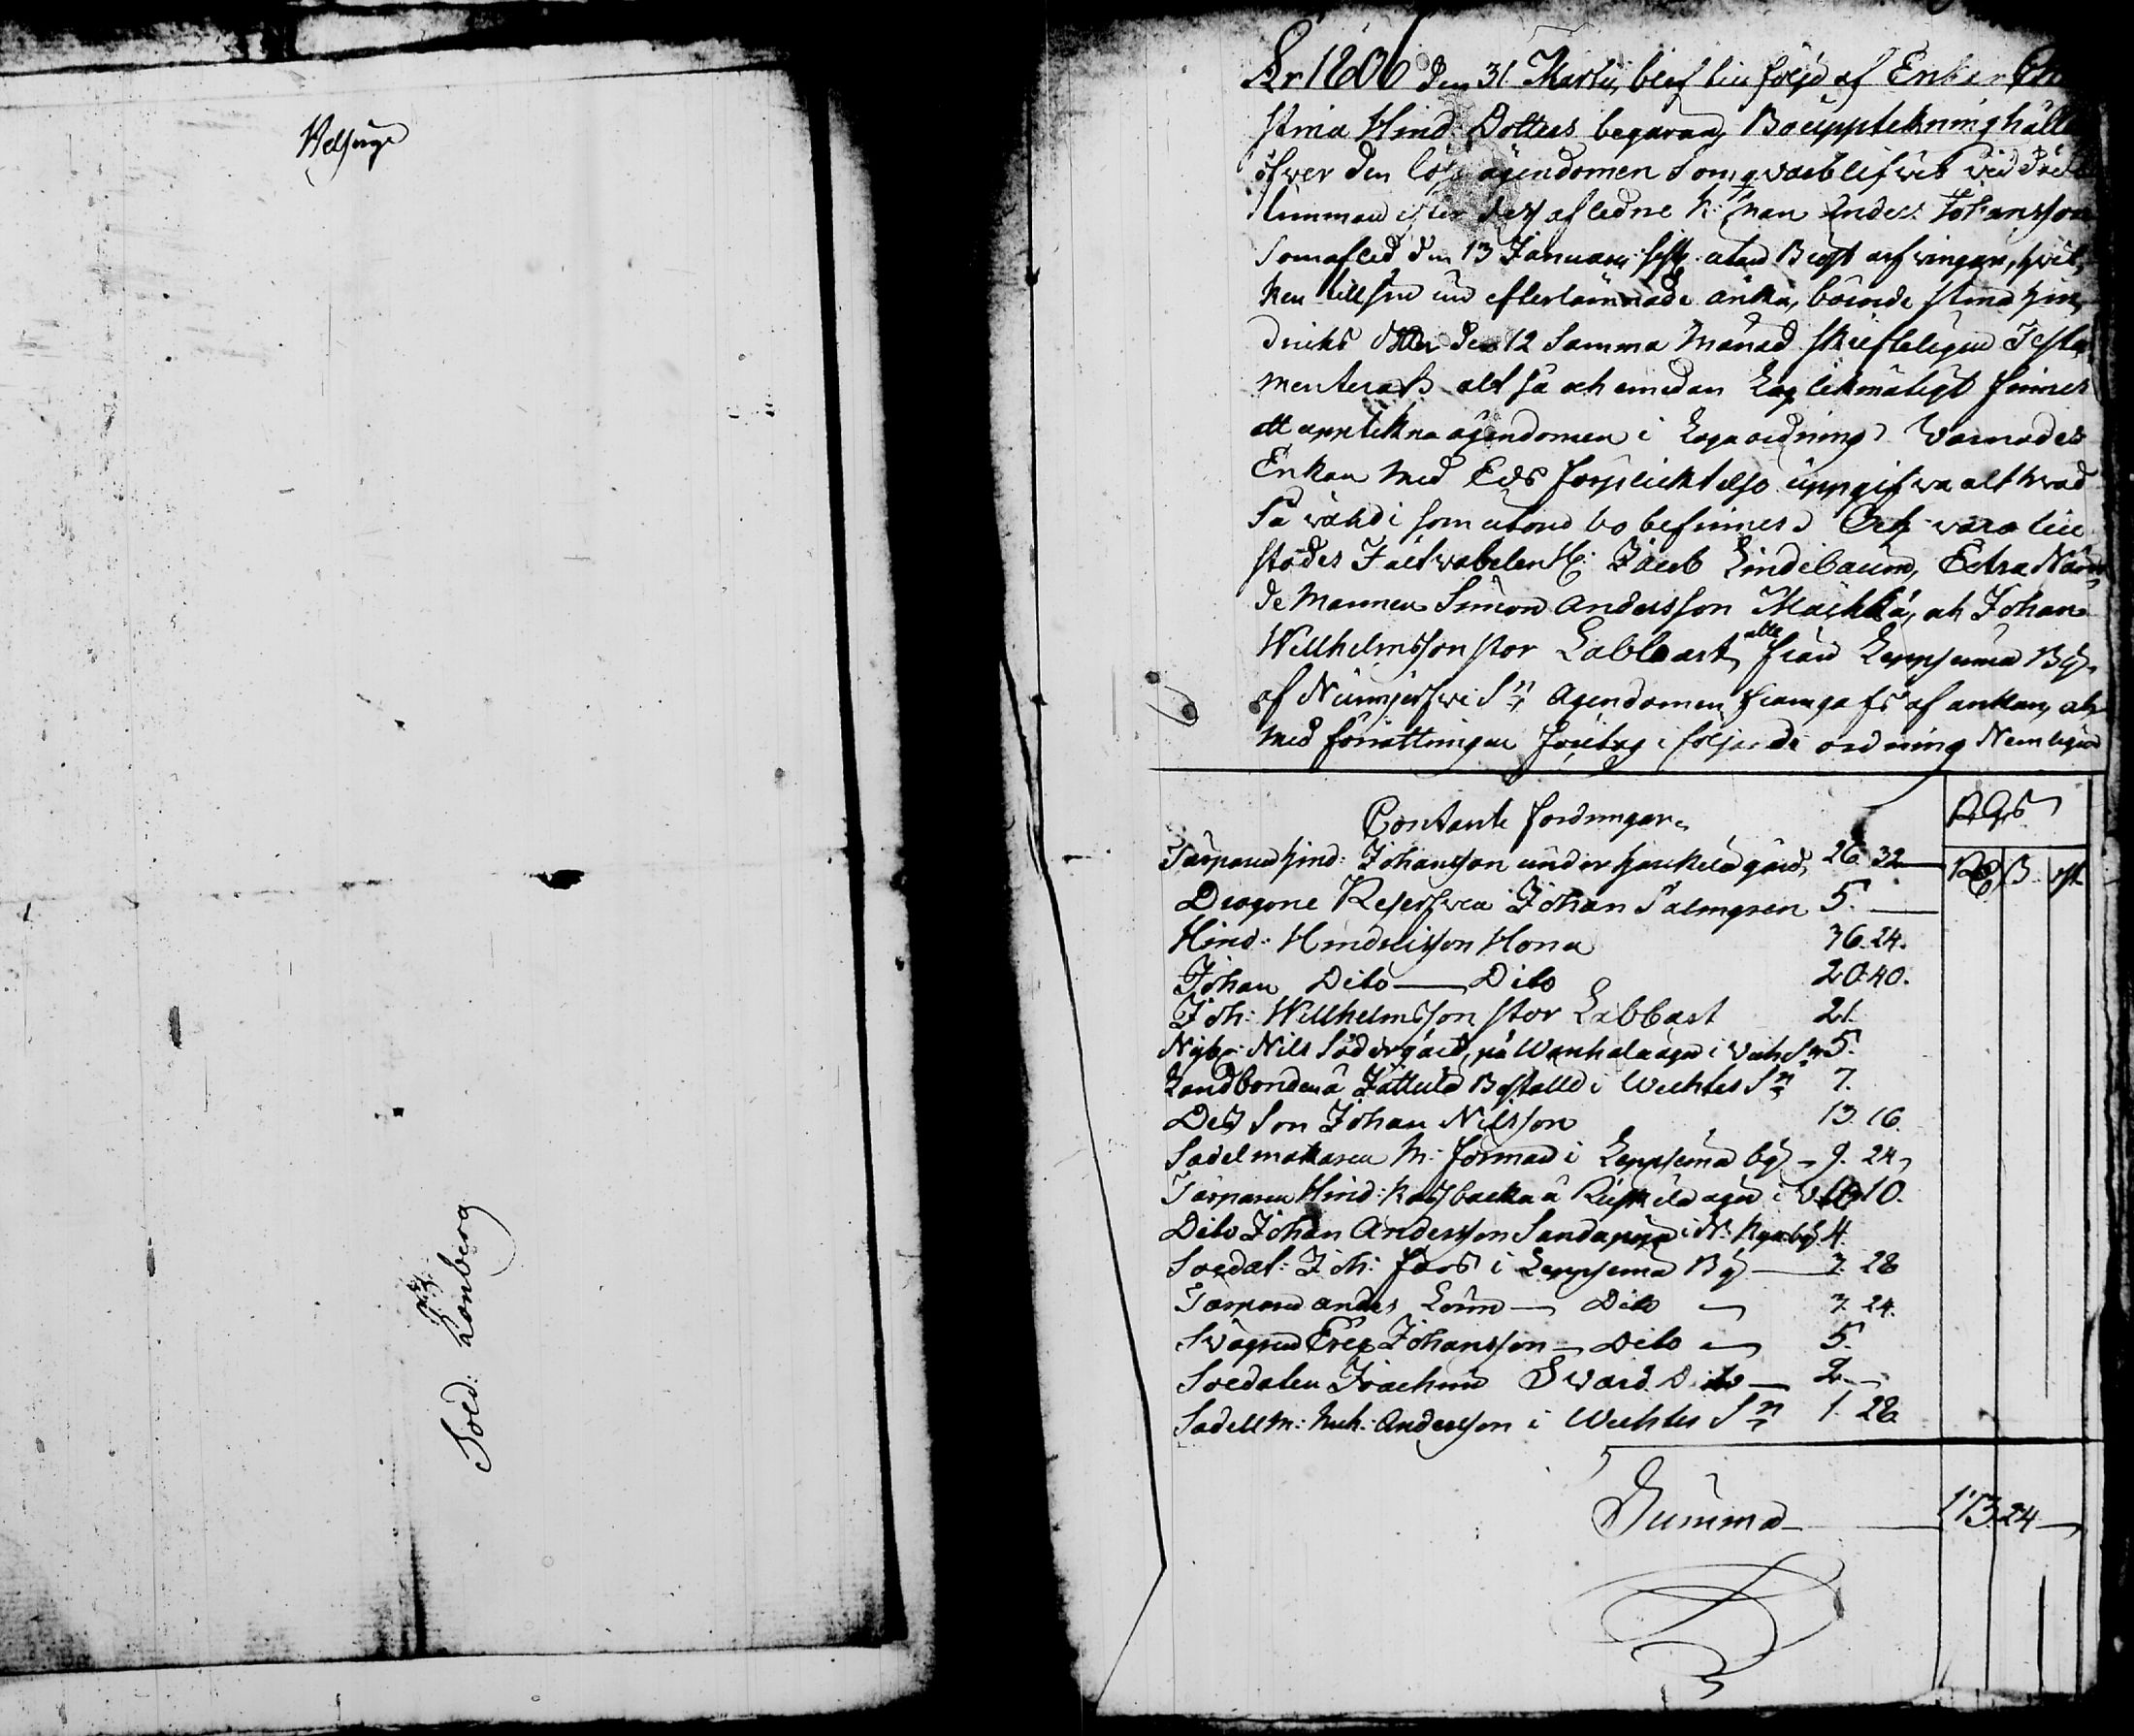 Helsinge
Sold: Lönberg
År 1806 den 31 Martij, blef till följd af Enkan
Stina Hind: Dotters begäran, Bouppteckning håll
öfver den lösa ägendomen som qvarblifvit vid död
timman efter dess afledne k: man Anders Johansson
som afled den 13 Januarii sistl. utan Bröst arfvingar, hvil,
ken till sin efterlämnade änka, bemälte Stina Hin,
dricks Dotter den 12 samma Månad skrifteligen Testa,
menterat alt så och emedan Lag likmätigt finnes
att upptekna ägendomen i Laga ordning Varnades
Enkan med Eds förplicktelse uppgifva alt hvad
så väl i som utom bo befinnes Och vara till
städes Fältväbelen H: Jacob Lindebaum, Extra Näm
de Mannen Simon Andersson Markka, och Johan
Willhelmsson stor Labbart, alla från Leppsema By
af Nurmijerfvi Sn Ägendomen framgafs af enkan, och
med förrättningen företogs i följande ordning Nemligen
Contante fordringar RGS
Torparen Hind: Johansson under gård, 26 32 Rd ß rst
Dragone Reserfven Johan Palmgren 5.
Hind: Hindricsson Hona 36. 24.
Johan Dito Dito 20. 40.
Joh: Willhelmsson stor Labbart 21.
Nyb: Nils Södergård, på Wanhala ägor i Vich Sn 5.
Landbonden å Jättilä Boställe i Wichtis Sn 7.
Dess Son Johan Nilsson 13. 16.
Sadelmakaren M: Forman i Leppsema by 9. 24
Torparen Hind: backa å ägor i 10.
Dito Johan Andersson Sand i N: by 4.
Soldat: Joh: Fors i Leppsema By 3. 28
Torparen Anders Lönn Dito 3. 24.
Svågren Eric Johansson Dito 5.
Soldaten Joachim Svärd Dito 2
Sadellm: Mich: Andersson i Wichtis Sn 1. 28
Summa 173. 24